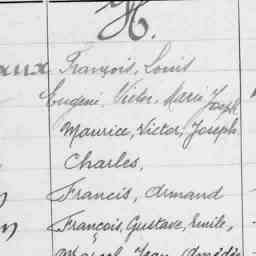 H.
aux François, Louis
Eugène, Victor, Marie Joseph
Maurice, Victor, Joseph
Charles.
Francis, Armand
François, Gustave, Emile,
Marcel, Jean, Amédée